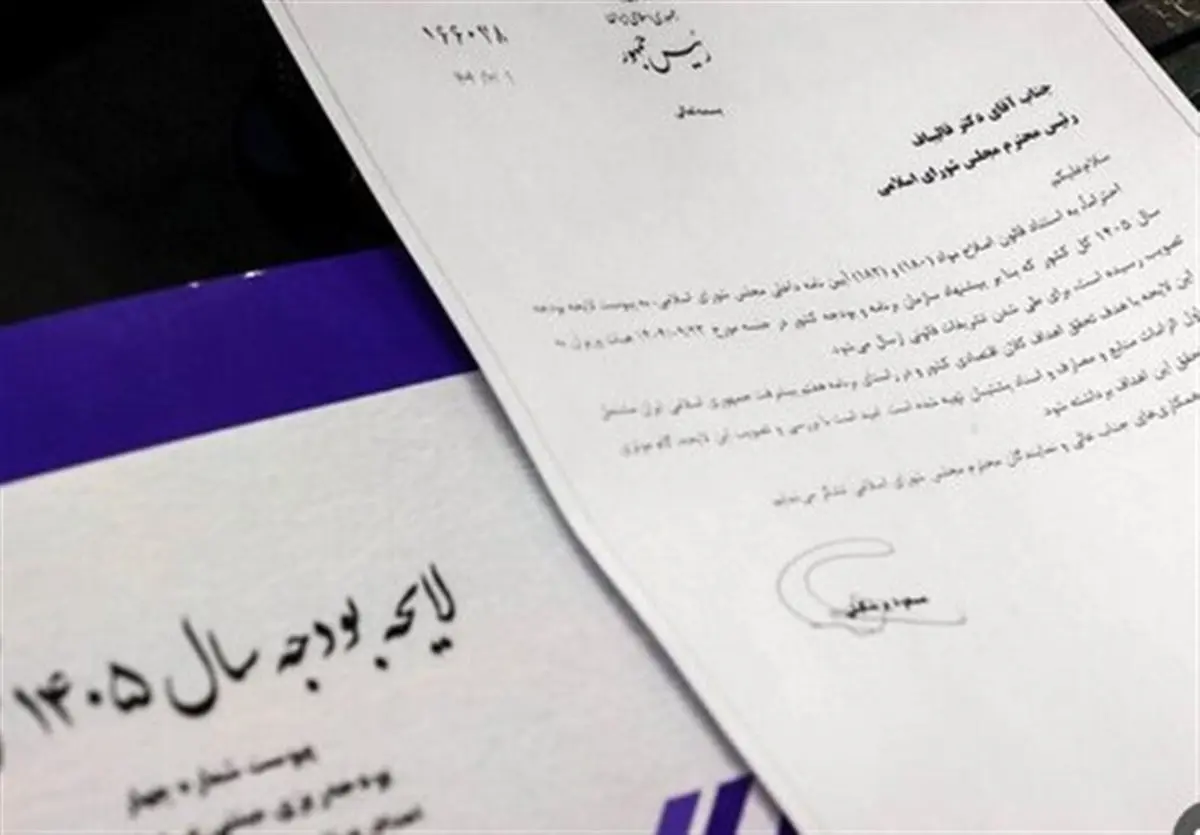 جمهوری اسلامی ایران
رئیس جمهور
۱۶۶۰۲۸
بسمه‌تعالی
جناب آقای دکتر قالیباف
رئیس محترم مجلس شورای اسلامی
سلام‌علیکم
احتراماً، به استناد قانون اصلاح مواد (۱۸۰) و (۱۸۲) آیین نامه داخلی مجلس شورای اسلامی، به پیوست لایحه بودجه
سال ۱۴۰۵ کل کشور که بنا بر پیشنهاد سازمان برنامه و بودجه کشور در جلسه مورخ هیئت وزیران به
تصویب رسیده است، برای طی شدن تشریفات قانونی ارسال می‌شود.
این لایحه با هدف تحقق اهداف کلان اقتصادی کشور و در راستای برنامه هفتم پیشرفت جمهوری اسلامی ایران مشتمل
الزامات منابع و مصارف و اسناد پشتیبان تهیه شده است. امید است با بررسی و تصویب این لایحه، گام موثری
تحقق این اهداف برداشته شود
همکاری‌های جناب عالی و نمایندگان محترم مجلس شورای اسلامی تشکر می‌نماید
مسعود پزشکیان
لایحه بودجه سال ۱۴۰۵
پیوست شماره چهار